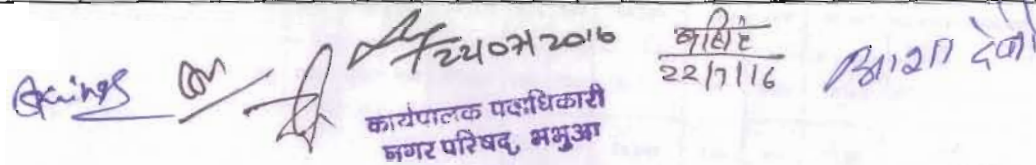 22/07/2016
22/7/16
आशा देवी
कार्यपालक पदाधिकारी
नगर परिषद्, भभुआ